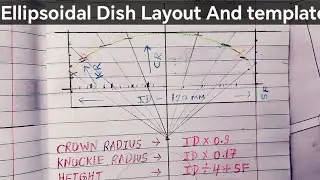 Ellipsoidal Dish Layout And template
KR
CR
ID = 120 mm
SF
CROWN RADIUS → ID × 0.9
KNUCKLE RADIUS → ID × 0.17
HEIGHT → ID ÷ 4 + SF